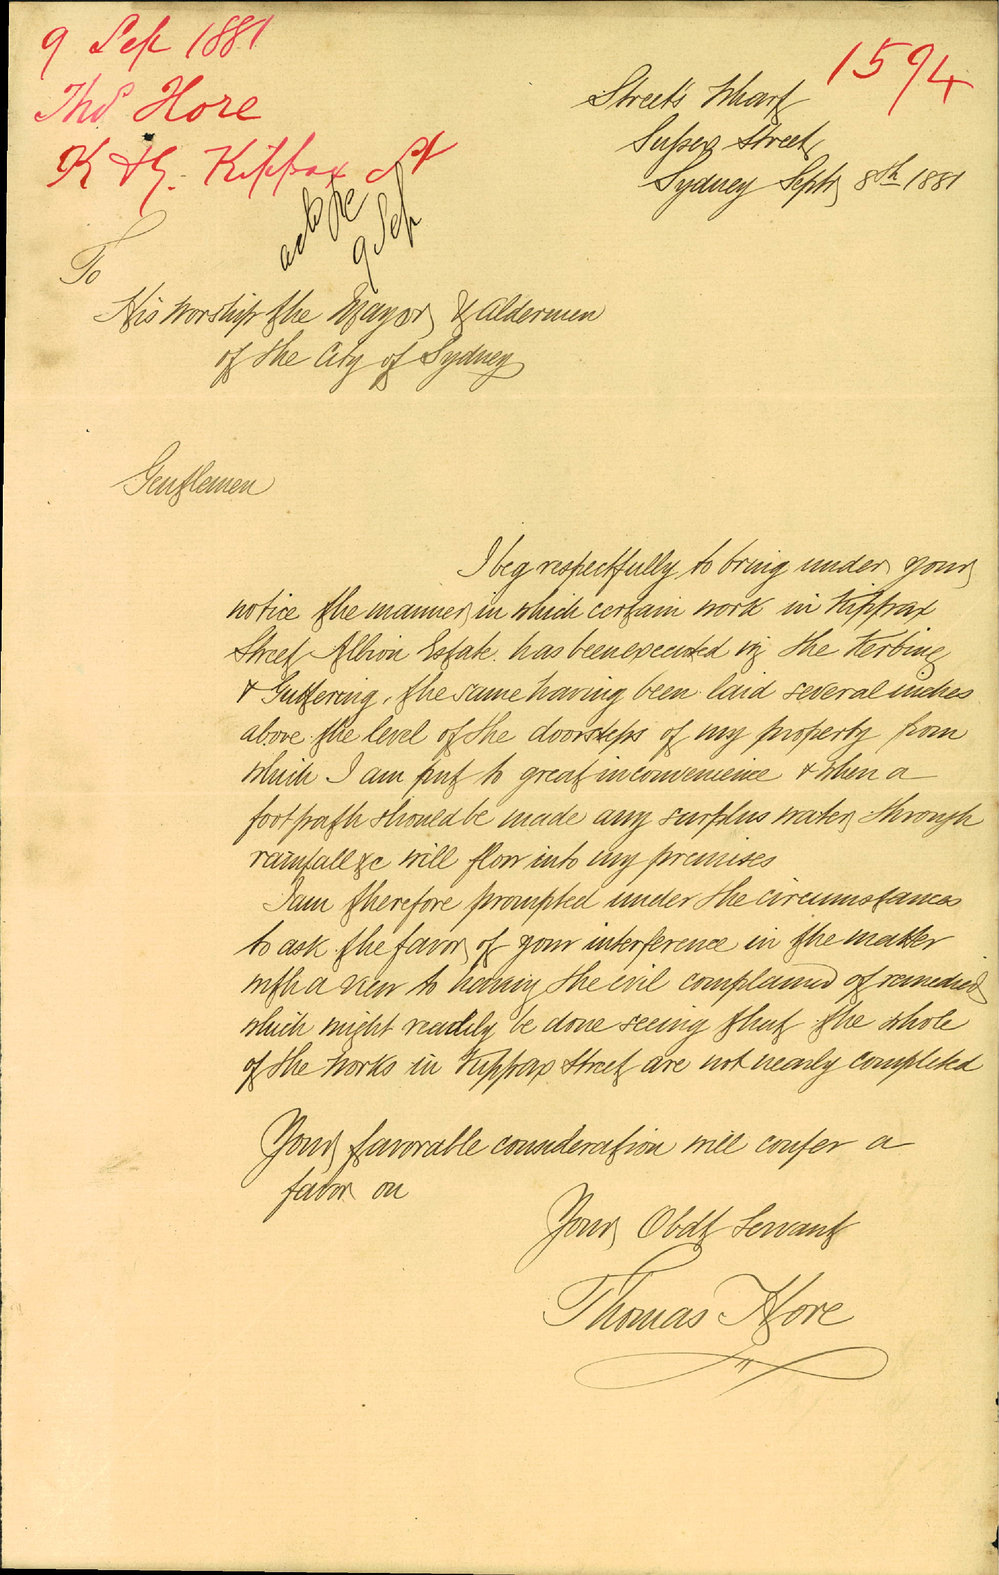 9 Sep 1881
Thos Hore
K & G. Kippax St
1594
ackd
9 Sep
Street's Wharf
Sussex Street,
Sydney Sept, 8th 1881
To
His Worship the Mayor & Aldermen
of the City of Sydney
Gentlemen
I beg respectfully to bring under your
notice the manner in which certain work in Kippax
Street Albion Estate. has been executed viz the Kerbing
& Guttering, the same having been laid several inches
above the level of the doorsteps of my property from
which I am put to great inconvenience & when a
footpath should be made any surplus water through
rainfall &c will flow into my premises
I am therefore prompted under the circumstances
to ask the favor of your interference in the matter
with a view to having the evil complained of remedied
which might readily be done seeing that the whole
of the works in Kippax Street are not nearly completed
Your favorable consideration will confer a
favor on
Your Obdt Servant
Thomas Hore